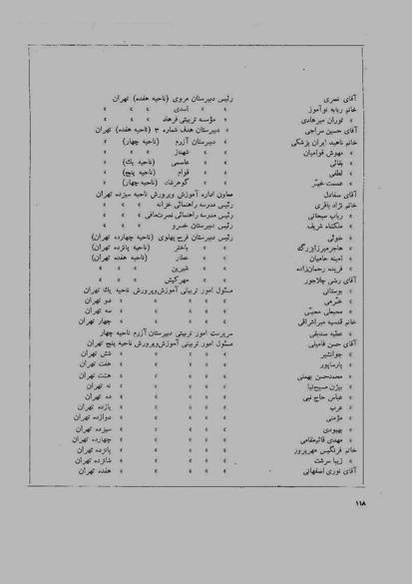 آقای نصری رئیس دبیرستان مروی (ناحیه هفده) تهران
خانم ربابه نوآموز » » اسدی » » »
» توران میرهادی » مؤسسه تربیتی فرهاد » » »
آقای حسین سراجی » دبیرستان هدف شماره ۳ (ناحیه هفده) تهران
خانم ناهید ایران پزشکی » دبیرستان آزرم (ناحیه چهار) »
» مهوش قوامیان » » شهناز » » »
» بقائی » » عاصمی (ناحیه یك) »
» لطفی » » قوام (ناحیه پنج) »
» عصمت خیبر » » گوهرشاد (ناحیه چهار) »
آقای سعادل معاون اداره آموزش وپرورش ناحیه سیزده تهران
خانم نژاد باقری رئیس مدرسه راهنمائی خزانه » » »
» رباب سبحانی رئیس مدرسه راهنمائی نصرت‌معافی » » »
» ملکتاه شریف رئیس دبیرستان خسرو » » »
» خوئی رئیس دبیرستان فرح پهلوی (ناحیه چهارده) تهران
» هاجرمیرزابزرگه » » باختر (ناحیه پانزده تهران)
» امینه حامیان » » عفاز (ناحیه هفده تهران)
» فریده رحمان‌زاده » » شیرین » » »
آقای رضی چلاجور » » مهرکیش » » »
» بوستانی مسئول امور تربیتی آموزش‌وپرورش ناحیه یك تهران
» خرمی » » » » دو تهران
» محبعلی محبی » » » » سه تهران
خانم قدسیه میراشرافی » » » » چهار تهران
» عطیه صدیقی سرپرست امور تربیتی دبیرستان آزرم ناحیه چهار
آقای حسن فامیلی مسئول امور تربیتی آموزش‌وپرورش ناحیه پنج تهران
» جوانشیر » » » » شش تهران
» پارساپور » » » » هفت تهران
» محمدحسن بهمنی » » » » هشت تهران
» بیژن مسیح‌نیا » » » » نه تهران
» عباس حاج نبی » » » » ده تهران
» عرب » » » » یازده تهران
» مؤمنی » » » » دوازده تهران
» بهبودی » » » » سیزده تهران
» مهدی قائم‌مقامی » » » » چهارده تهران
خانم فرنگیس مهرپرور » » » » پانزده تهران
» زیبا سرشت » » » » شانزده تهران
آقای نوری اصفهانی » » » » هفده تهران
۱۱۸